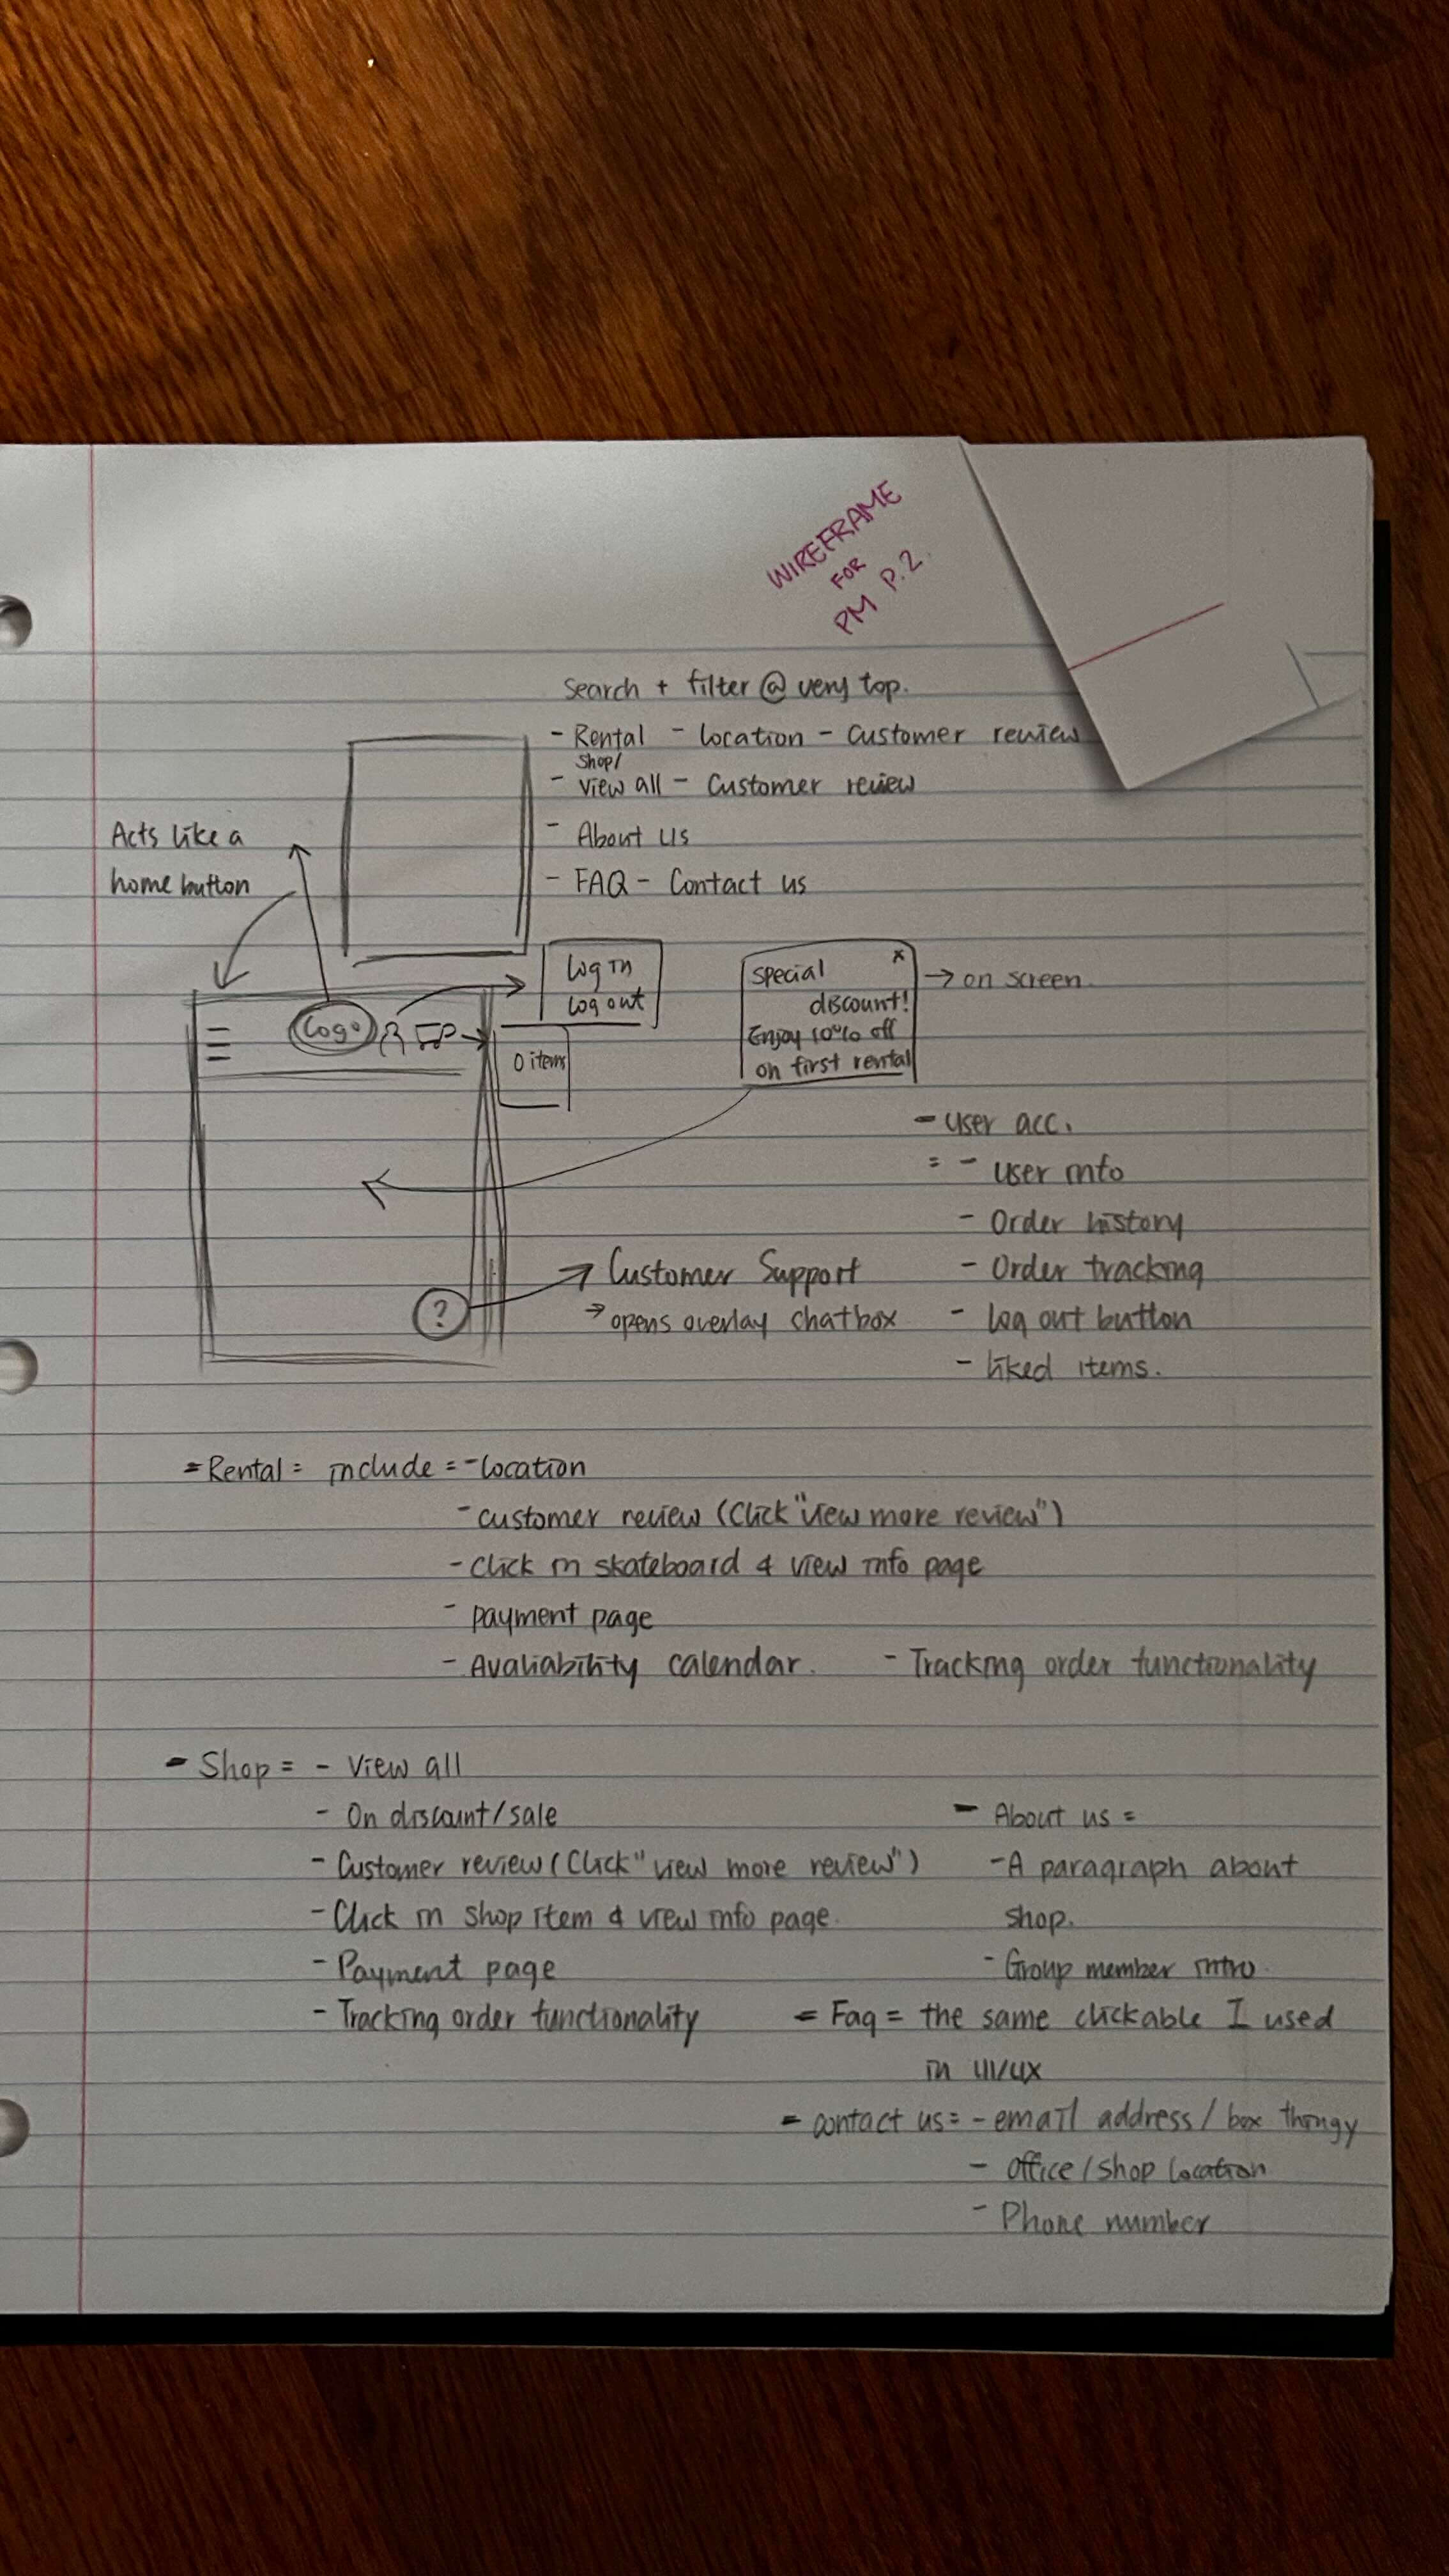 WIREFRAME
FOR
PM P.2
Search + filter @ very top.
- Rental - location - Customer review
Shop/
- View all - Customer review
- About us
- FAQ - Contact us
Acts like a
home button
Logo
Log in
Log out
0 items
x
special
discount!
Enjoy 10% off
on first rental
→ on screen
- user acc.
= - user info
- Order history
- Order tracking
- log out button
- liked items.
?
→ Customer Support
→ opens overlay chatbox
= Rental = include = - location
- customer review (Click "view more review")
- Click in skateboard & view info page
- payment page
- Avaliability calendar. - Tracking order functionality
- Shop = - View all
- On discount/sale
- Customer review (Click "view more review")
- Click in shop item & view info page
- Payment page
- Tracking order functionality
- About us =
- A paragraph about
shop.
- Group member intro
= Faq = the same clickable I used
in UI/UX
= contact us = - email address / box thingy
- Office / shop location
- Phone number